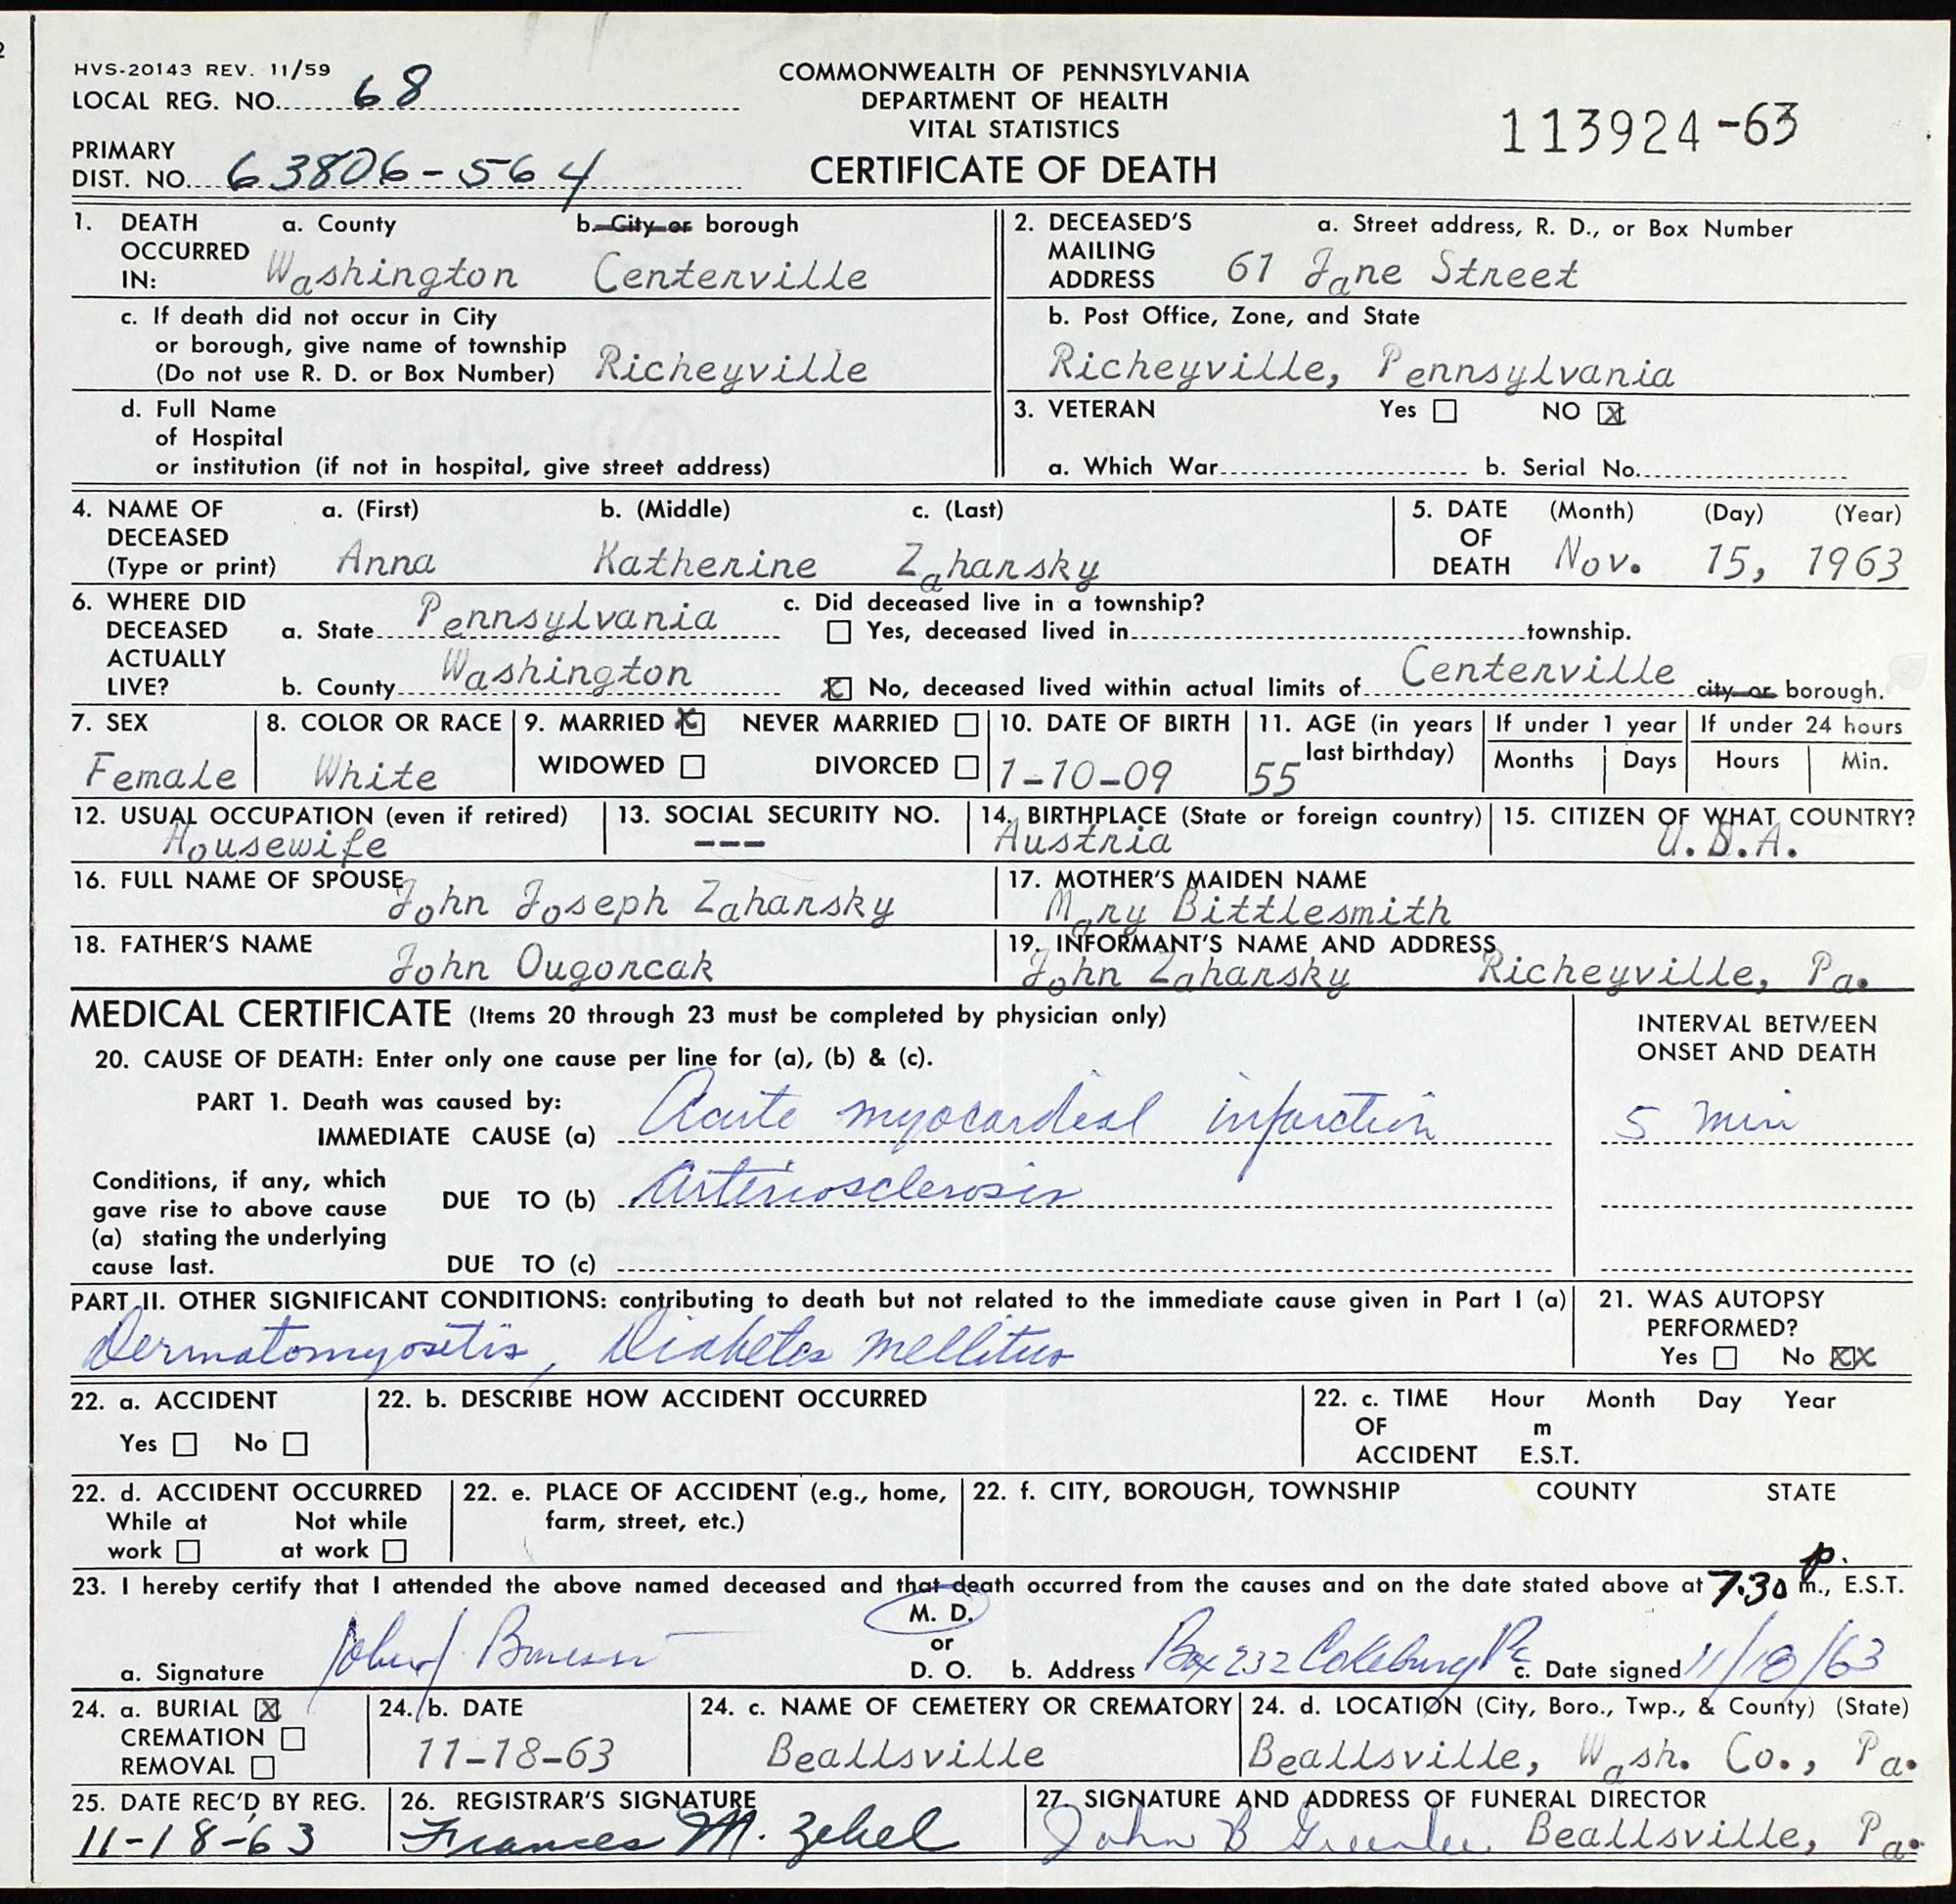 HVS-20143 REV. 11/59
LOCAL REG. NO. 68
COMMONWEALTH OF PENNSYLVANIA
DEPARTMENT OF HEALTH
VITAL STATISTICS
CERTIFICATE OF DEATH
113924-63
PRIMARY
DIST. NO. 63806-564
1. DEATH OCCURRED IN: a. County b. City or borough
Washington Centerville
2. DECEASED'S MAILING ADDRESS a. Street address, R. D., or Box Number
61 Jane Street
c. If death did not occur in City
or borough, give name of township
(Do not use R. D. or Box Number) Richeyville
b. Post Office, Zone, and State
Richeyville, Pennsylvania
d. Full Name
of Hospital
or institution (if not in hospital, give street address)
3. VETERAN Yes NO X
a. Which War b. Serial No.
4. NAME OF DECEASED (Type or print) a. (First) b. (Middle) c. (Last)
Anna Katherine Zaharsky
5. DATE OF DEATH (Month) (Day) (Year)
Nov. 15, 1963
6. WHERE DID DECEASED ACTUALLY LIVE?
a. State Pennsylvania
b. County Washington
c. Did deceased live in a township?
Yes, deceased lived in township.
X No, deceased lived within actual limits of Centerville city or borough.
7. SEX
Female
8. COLOR OR RACE
White
9. MARRIED X NEVER MARRIED
WIDOWED DIVORCED
10. DATE OF BIRTH
1-10-09
11. AGE (in years last birthday)
55
If under 1 year
Months Days
If under 24 hours
Hours Min.
12. USUAL OCCUPATION (even if retired)
Housewife
13. SOCIAL SECURITY NO.
---
14. BIRTHPLACE (State or foreign country)
Austria
15. CITIZEN OF WHAT COUNTRY?
U.S.A.
16. FULL NAME OF SPOUSE
John Joseph Zaharsky
17. MOTHER'S MAIDEN NAME
Mary Bittlesmith
18. FATHER'S NAME
John Ougorcak
19. INFORMANT'S NAME AND ADDRESS
John Zaharsky Richeyville, Pa.
MEDICAL CERTIFICATE (Items 20 through 23 must be completed by physician only)
20. CAUSE OF DEATH: Enter only one cause per line for (a), (b) & (c).
INTERVAL BETWEEN
ONSET AND DEATH
PART 1. Death was caused by:
IMMEDIATE CAUSE (a) Acute myocardial infarction 5 min
Conditions, if any, which
gave rise to above cause
(a) stating the underlying
cause last.
DUE TO (b) Arteriosclerosis
DUE TO (c)
PART II. OTHER SIGNIFICANT CONDITIONS: contributing to death but not related to the immediate cause given in Part I (a)
Dermatomyositis, Diabetes mellitus
21. WAS AUTOPSY
PERFORMED?
Yes No XX
22. a. ACCIDENT
Yes No
22. b. DESCRIBE HOW ACCIDENT OCCURRED
22. c. TIME OF ACCIDENT Hour Month Day Year
m
E.S.T.
22. d. ACCIDENT OCCURRED
While at work Not while at work
22. e. PLACE OF ACCIDENT (e.g., home,
farm, street, etc.)
22. f. CITY, BOROUGH, TOWNSHIP COUNTY STATE
23. I hereby certify that I attended the above named deceased and that death occurred from the causes and on the date stated above at 7:30 p. m., E.S.T.
a. Signature
M. D.
or
D. O.
b. Address Box 232 Cokeburg Pa
c. Date signed 11/18/63
24. a. BURIAL X
CREMATION
REMOVAL
24. b. DATE
11-18-63
24. c. NAME OF CEMETERY OR CREMATORY
Beallsville
24. d. LOCATION (City, Boro., Twp., & County) (State)
Beallsville, Wash. Co., Pa.
25. DATE REC'D BY REG.
11-18-63
26. REGISTRAR'S SIGNATURE
Frances M. Zebel
27. SIGNATURE AND ADDRESS OF FUNERAL DIRECTOR
John B Greenlee Beallsville, Pa.